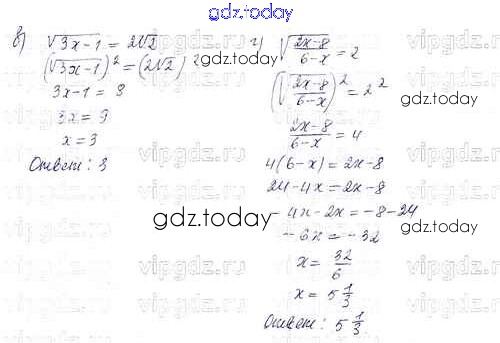 gdz.today
в) √(3x-1) = 2√2
(√(3x-1))² = (2√2)²
3x-1 = 9
3x = 9
x = 3
Ответ: 3
г) √((2x-8)/(6-x)) = 2
(√((2x-8)/(6-x)))² = 2²
(2x-8)/(6-x) = 4
4(6-x) = 2x-8
24-4x = 2x-8
-4x-2x = -8-24
-6x = -32
x = 32/6
x = 5 1/3
Ответ: 5 1/3.
gdz.today
gdz.today
gdz.today
gdz.today
gdz.today
vipgdz.ru